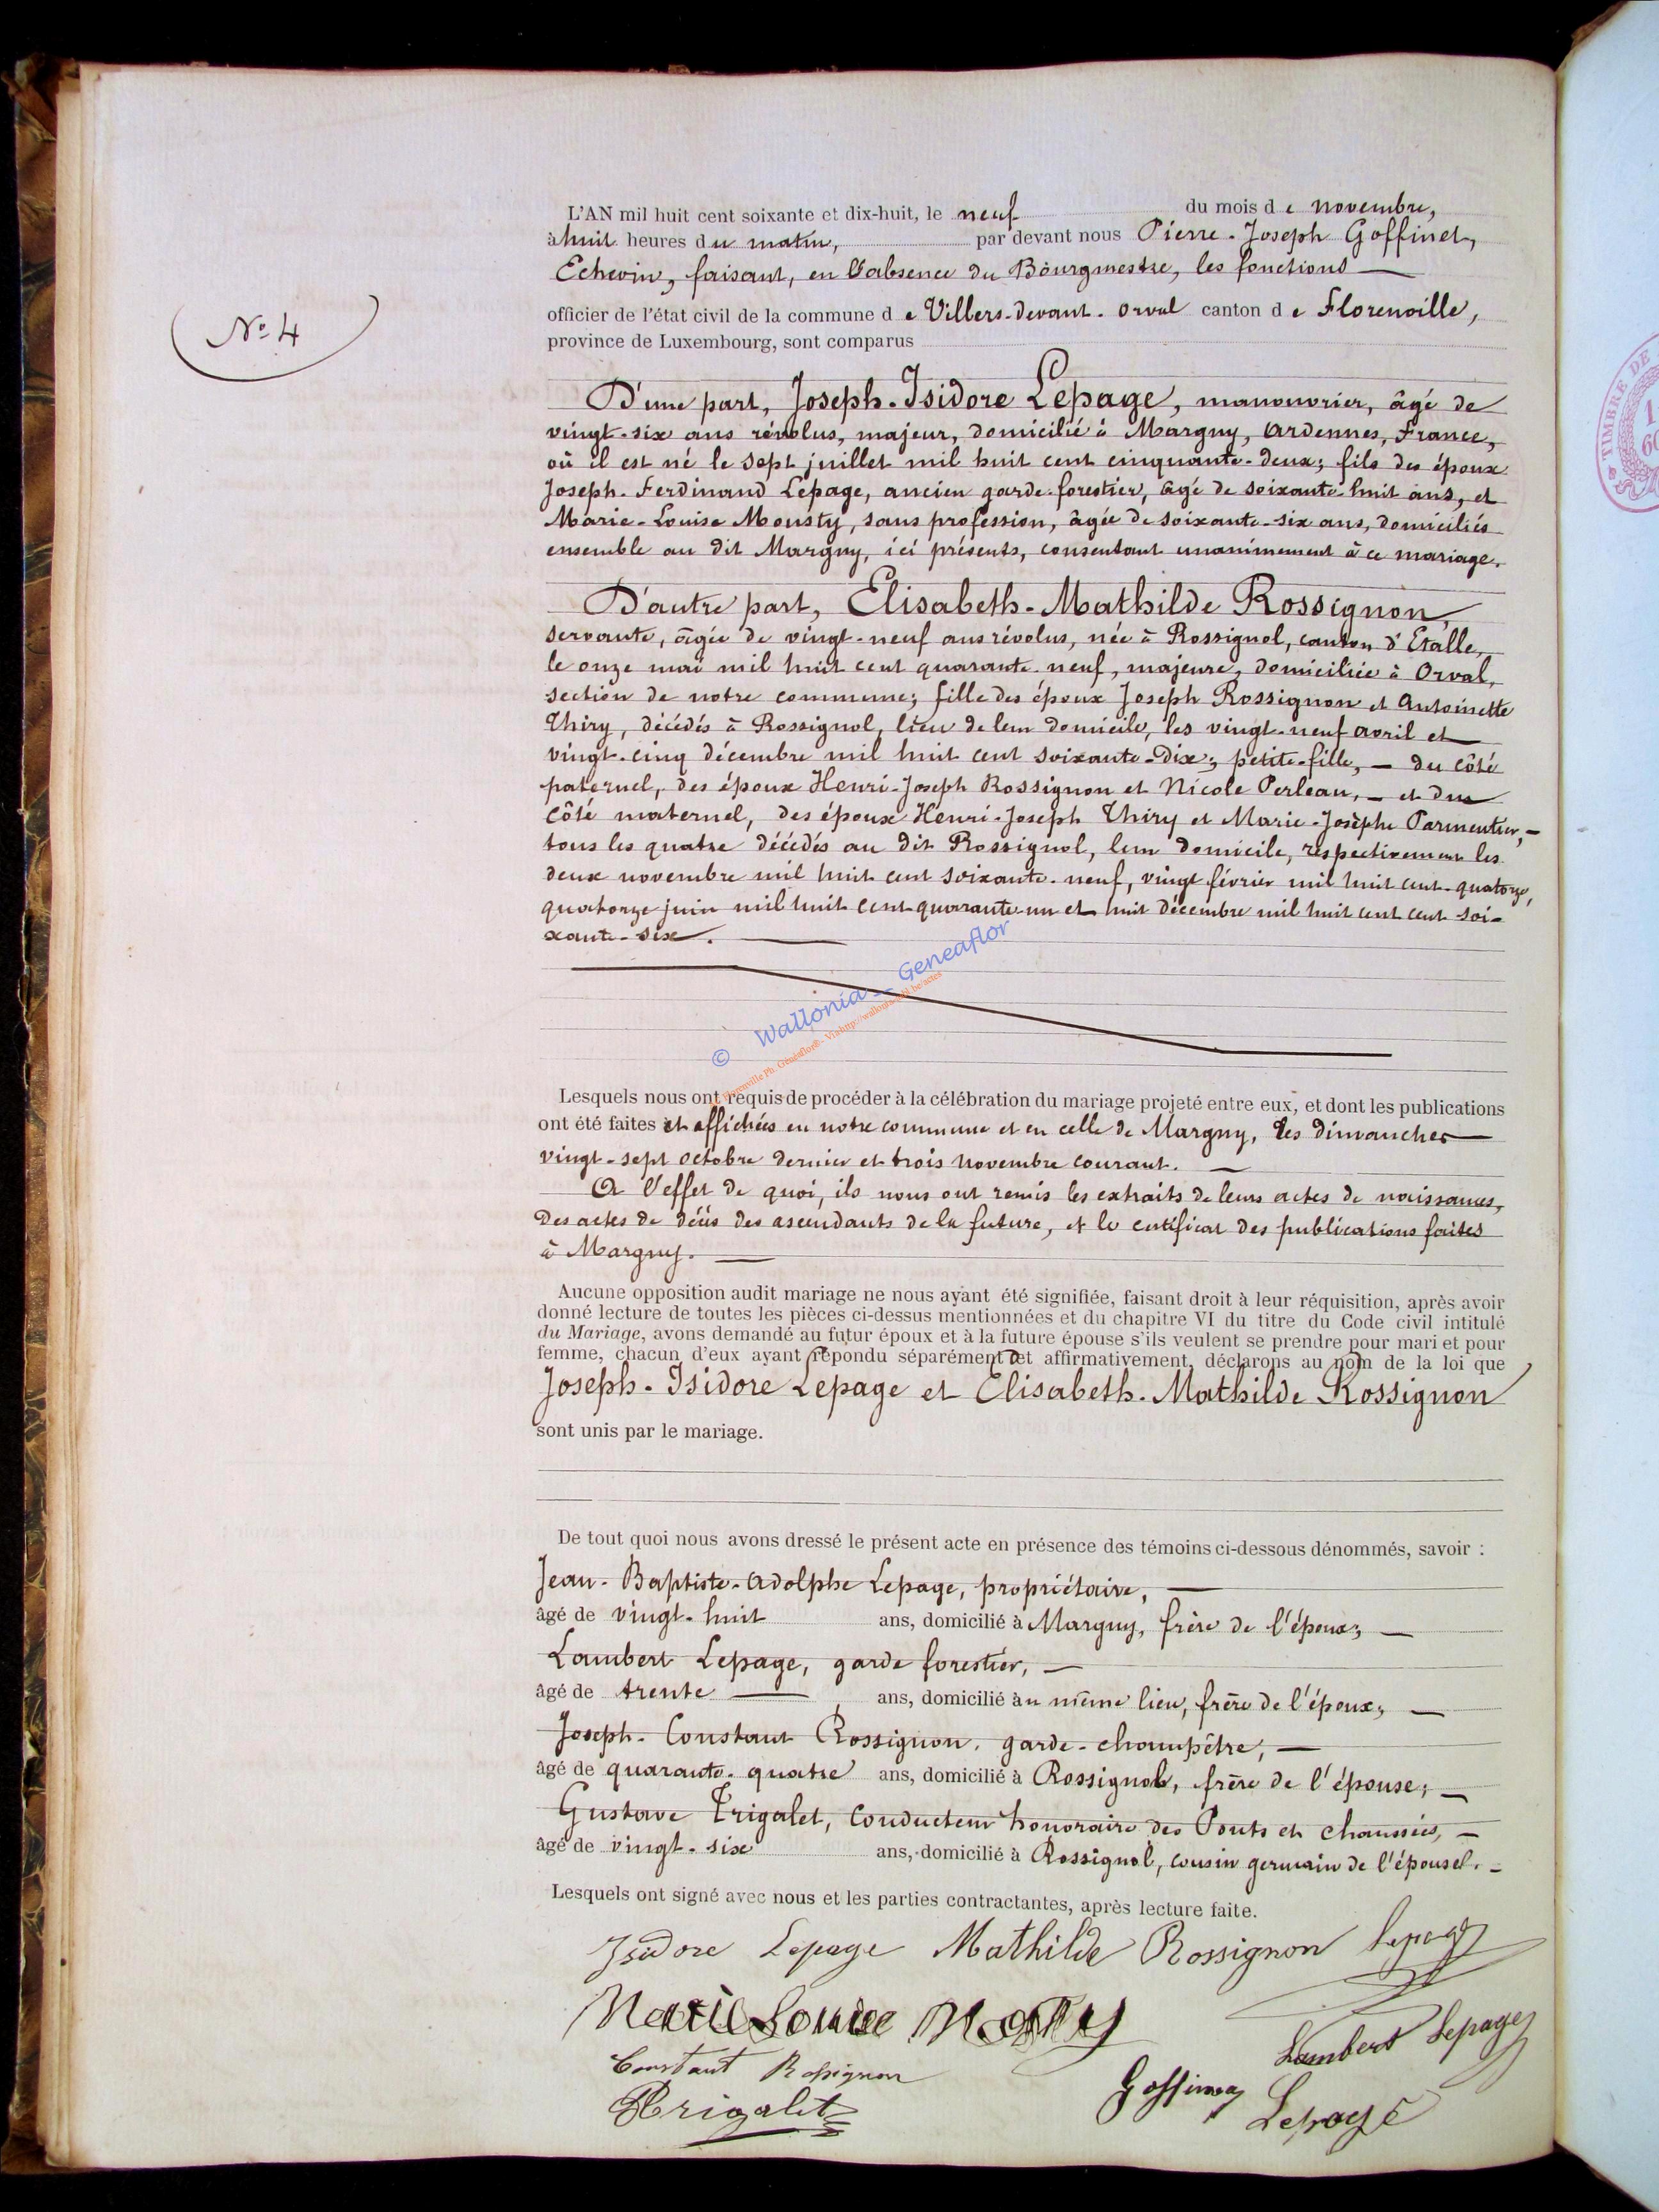 L'AN mil huit cent soixante et dix-huit, le neuf du mois de novembre,
à huit heures du matin, par devant nous Pierre-Joseph Goffinet,
Echevin, faisant, en l'absence du Bourgmestre, les fonctions
officier de l'état civil de la commune de Villers-devant-Orval canton de Florenville,
province de Luxembourg, sont comparus
N° 4
D'une part, Joseph-Isidore Lepage, manouvrier, âgé de
vingt-six ans révolus, majeur, domicilié à Margny, Ardennes, France,
où il est né le sept juillet mil huit cent cinquante-deux; fils des époux
Joseph-Ferdinand Lepage, ancien garde-forestier, âgé de soixante-huit ans, et
Marie-Louise Mousty, sans profession, âgée de soixante-six ans, domiciliés
ensemble au dit Margny, ici présents, consentant unanimement à ce mariage.
D'autre part, Elisabeth-Mathilde Rossignon,
servante, âgée de vingt-neuf ans révolus, née à Rossignol, canton d'Etalle,
le onze mai mil huit cent quarante-neuf, majeure, domiciliée à Orval,
section de notre commune; fille des époux Joseph Rossignon et Antoinette
Thiry, décédés à Rossignol, lieu de leur domicile, les vingt-neuf avril et
vingt-cinq décembre mil huit cent soixante-dix; petite-fille, — du côté
paternel, des époux Henri-Joseph Rossignon et Nicole Perleau, — et du
côté maternel, des époux Henri-Joseph Thiry et Marie-Josèphe Parmentier, —
tous les quatre décédés au dit Rossignol, leur domicile, respectivement les
deux novembre mil huit cent soixante-neuf, vingt février mil huit cent-quatorze,
quatorze juin mil huit cent quarante-un et huit décembre mil huit cent cent soi-
xante-six.
© Wallonia _ Geneaflor
Lesquels nous ont requis de procéder à la célébration du mariage projeté entre eux, et dont les publications
ont été faites et affichées en notre commune et en celle de Margny, les dimanches
vingt-sept octobre dernier et trois novembre courant.
A l'effet de quoi, ils nous ont remis les extraits de leurs actes de naissances,
des actes de décès des ascendants de la future, et le certificat des publications faites
à Margny.
Aucune opposition audit mariage ne nous ayant été signifiée, faisant droit à leur réquisition, après avoir
donné lecture de toutes les pièces ci-dessus mentionnées et du chapitre VI du titre du Code civil intitulé
du Mariage, avons demandé au futur époux et à la future épouse s'ils veulent se prendre pour mari et pour
femme, chacun d'eux ayant répondu séparément et affirmativement, déclarons au nom de la loi que
Joseph-Isidore Lepage et Elisabeth-Mathilde Rossignon
sont unis par le mariage.
De tout quoi nous avons dressé le présent acte en présence des témoins ci-dessous dénommés, savoir :
Jean-Baptiste-Adolphe Lepage, propriétaire,
âgé de vingt-huit ans, domicilié à Margny, frère de l'époux;
Lambert Lepage, garde forestier,
âgé de trente ans, domicilié au même lieu, frère de l'époux;
Joseph-Constant Rossignon, garde-champêtre,
âgé de quarante-quatre ans, domicilié à Rossignol, frère de l'épouse;
Gustave Trigalet, conducteur honoraire des Ponts et chaussées,
âgé de vingt-six ans, domicilié à Rossignol, cousin germain de l'épouse.
Lesquels ont signé avec nous et les parties contractantes, après lecture faite.
Isidore Lepage Mathilde Rossignon Lepage
Marie Louise
Lambert Lepage
Constant Rossignon
Goffinet
Trigalet
Lepage
TIMBRE DE